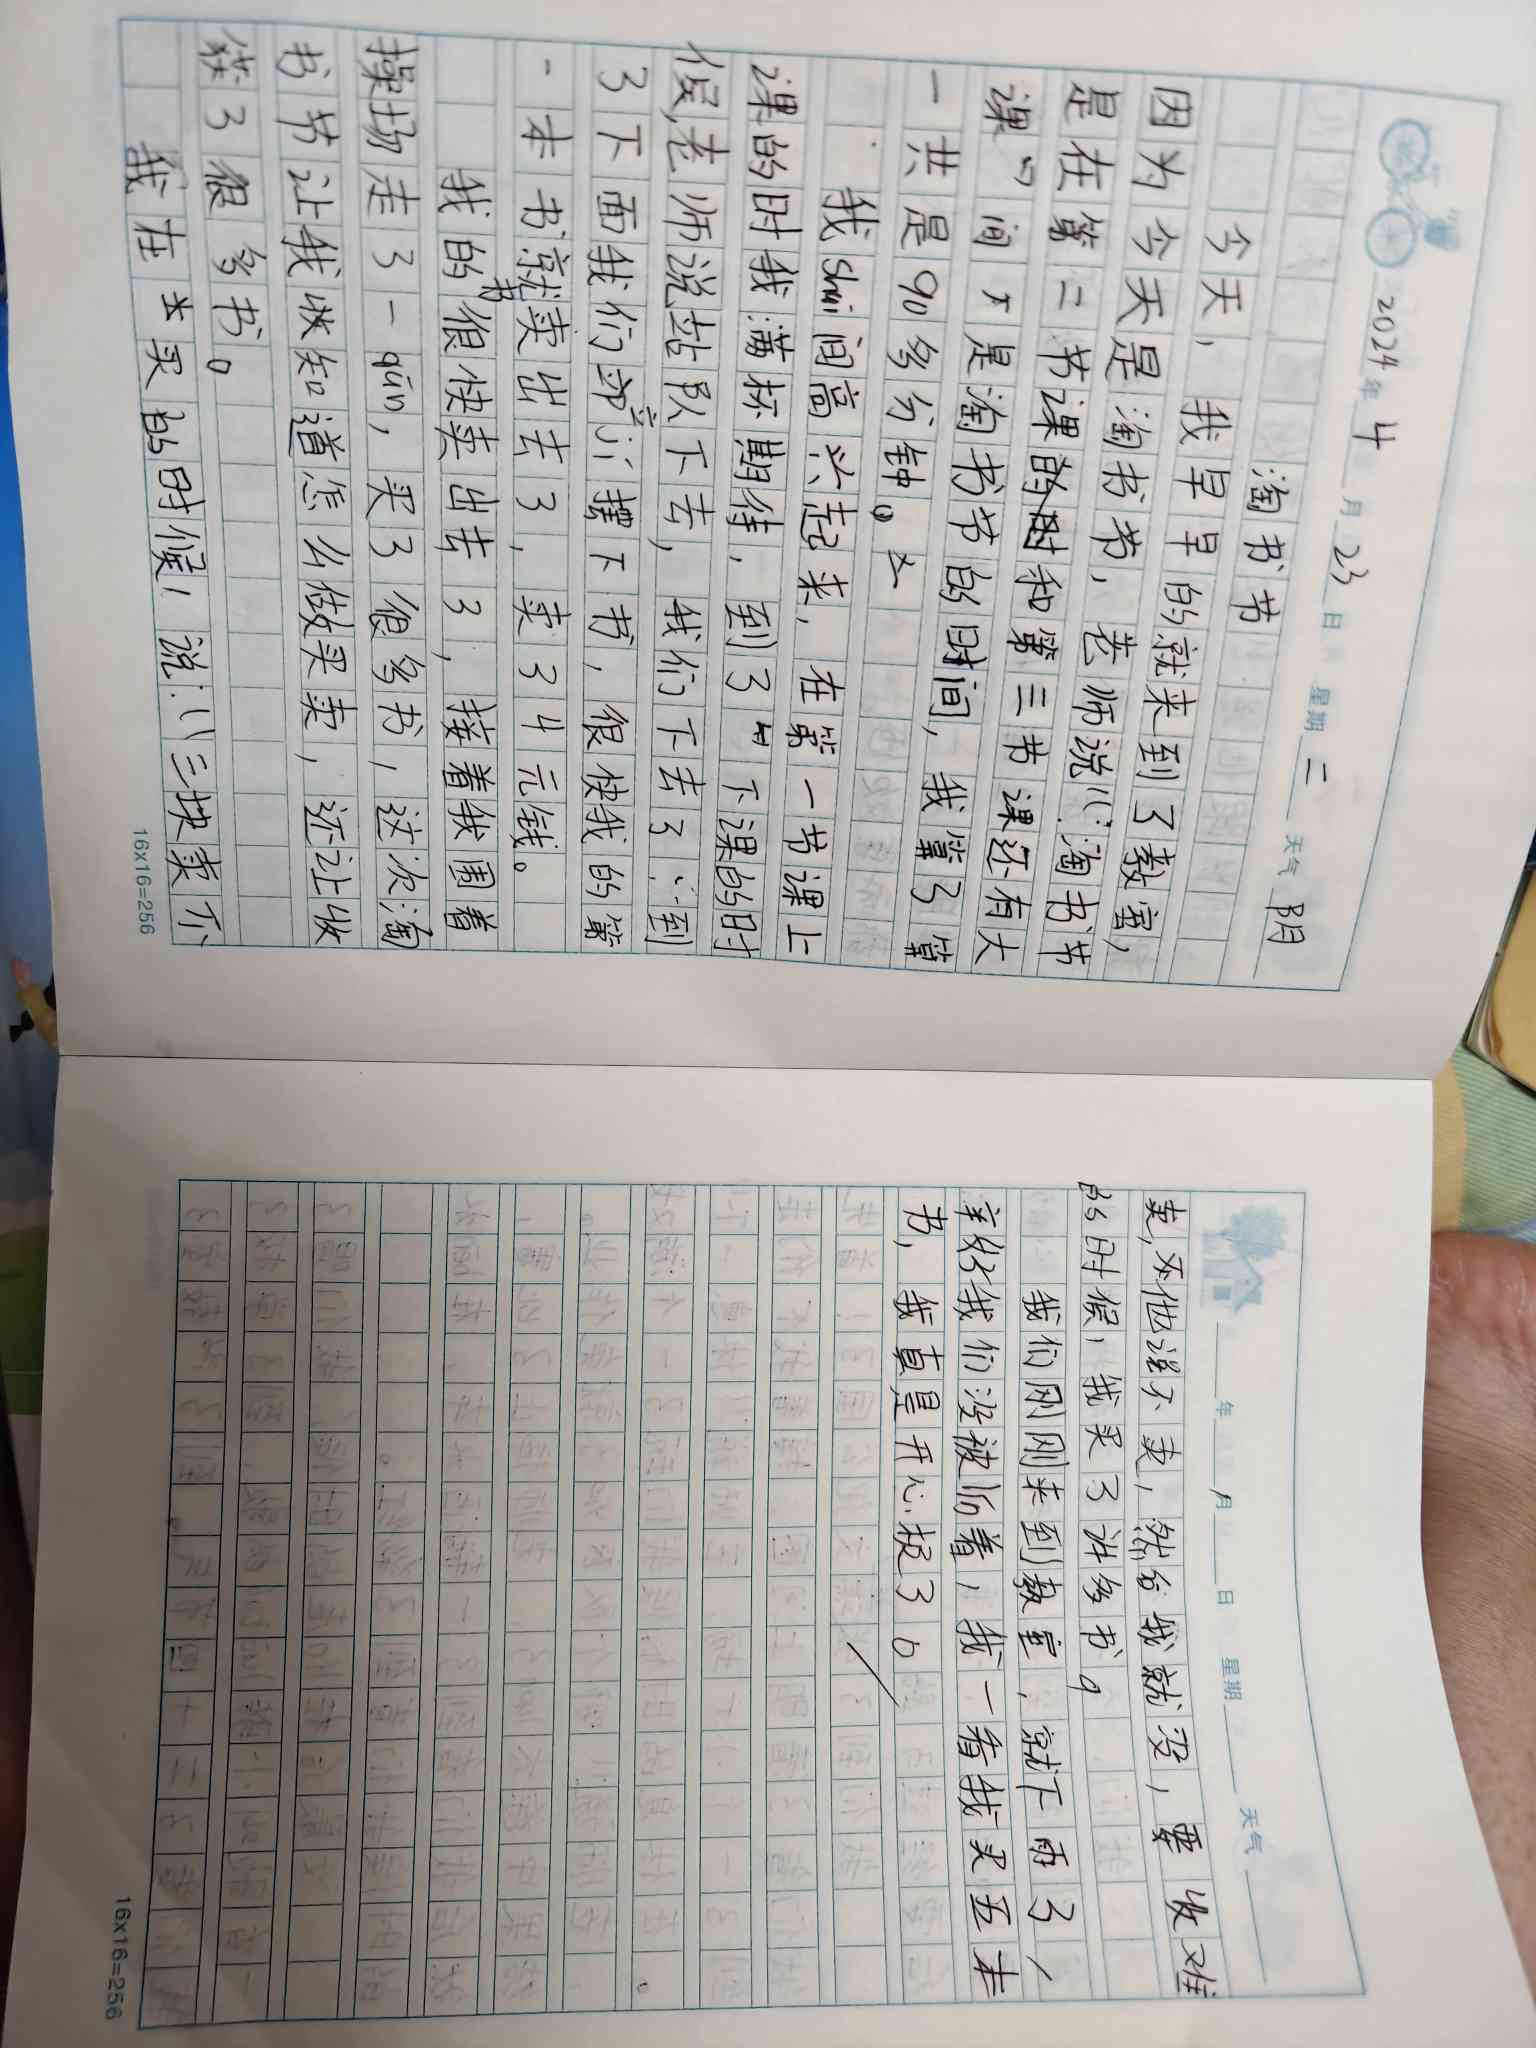 2024年4月23日 星期二 天气阴
淘书节
今天，我早早的就来到了教室，
因为今天是淘书节，老师说：“淘书节
是在第二节课的时和第三节课还有大
课间”是淘书节的时间，我算了算
一共是90多分钟。
我shuì间高兴起来，在第一节课上
课的时我满杯期待，到了下课的时
侯，老师说站队下去，我们下去了，到
了下面我们立刻摆下书，很快我的第
一本书就卖出去了，卖了4元钱。
我的书很快卖出去了，接着我围着
操场走了一qūn，买了很多书，这次淘
书节让我收知道怎么做买卖，还让收
获了很多书。
我在买的时候，说：“三块卖不
卖，他说不卖，然后我就变，要收难
的时候，我买了许多书。
我们刚刚来到教室，就下雨了，
幸好我们没被淋着，我一看我买五本
书，我真是开心极了。
16x16=256
年 月 日 星期 天气
16x16=256